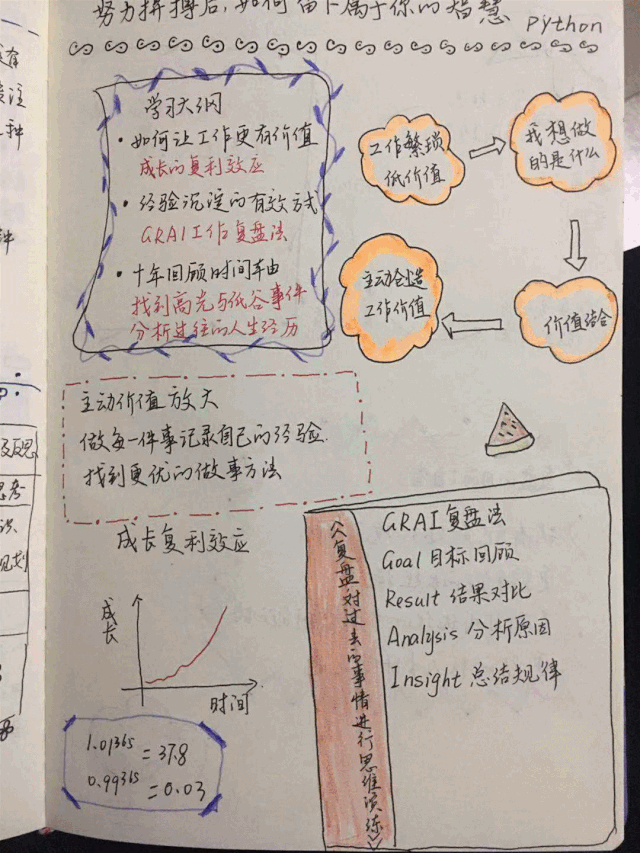 努力拼搏后，如何留下属于你的智慧
Python
学习大纲
•如何让工作更有价值
成长的复利效应
•经验沉淀的有效方式
GRAI工作复盘法
•十年回顾时间轴
找到高光与低谷事件
分析过往的人生经历
工作繁琐
低价值
我想做
的是什么
价值结合
主动创造
工作价值
主动价值放大
做每一件事记录自己的经验.
找到更优的做事方法
成长复利效应
成长
时间
1.01365=37.8
0.99365=0.03
《复盘对过去的事情进行思维演练》
GRAI复盘法
Goal目标回顾
Result 结果对比
Analysis 分析原因
Insight 总结规律